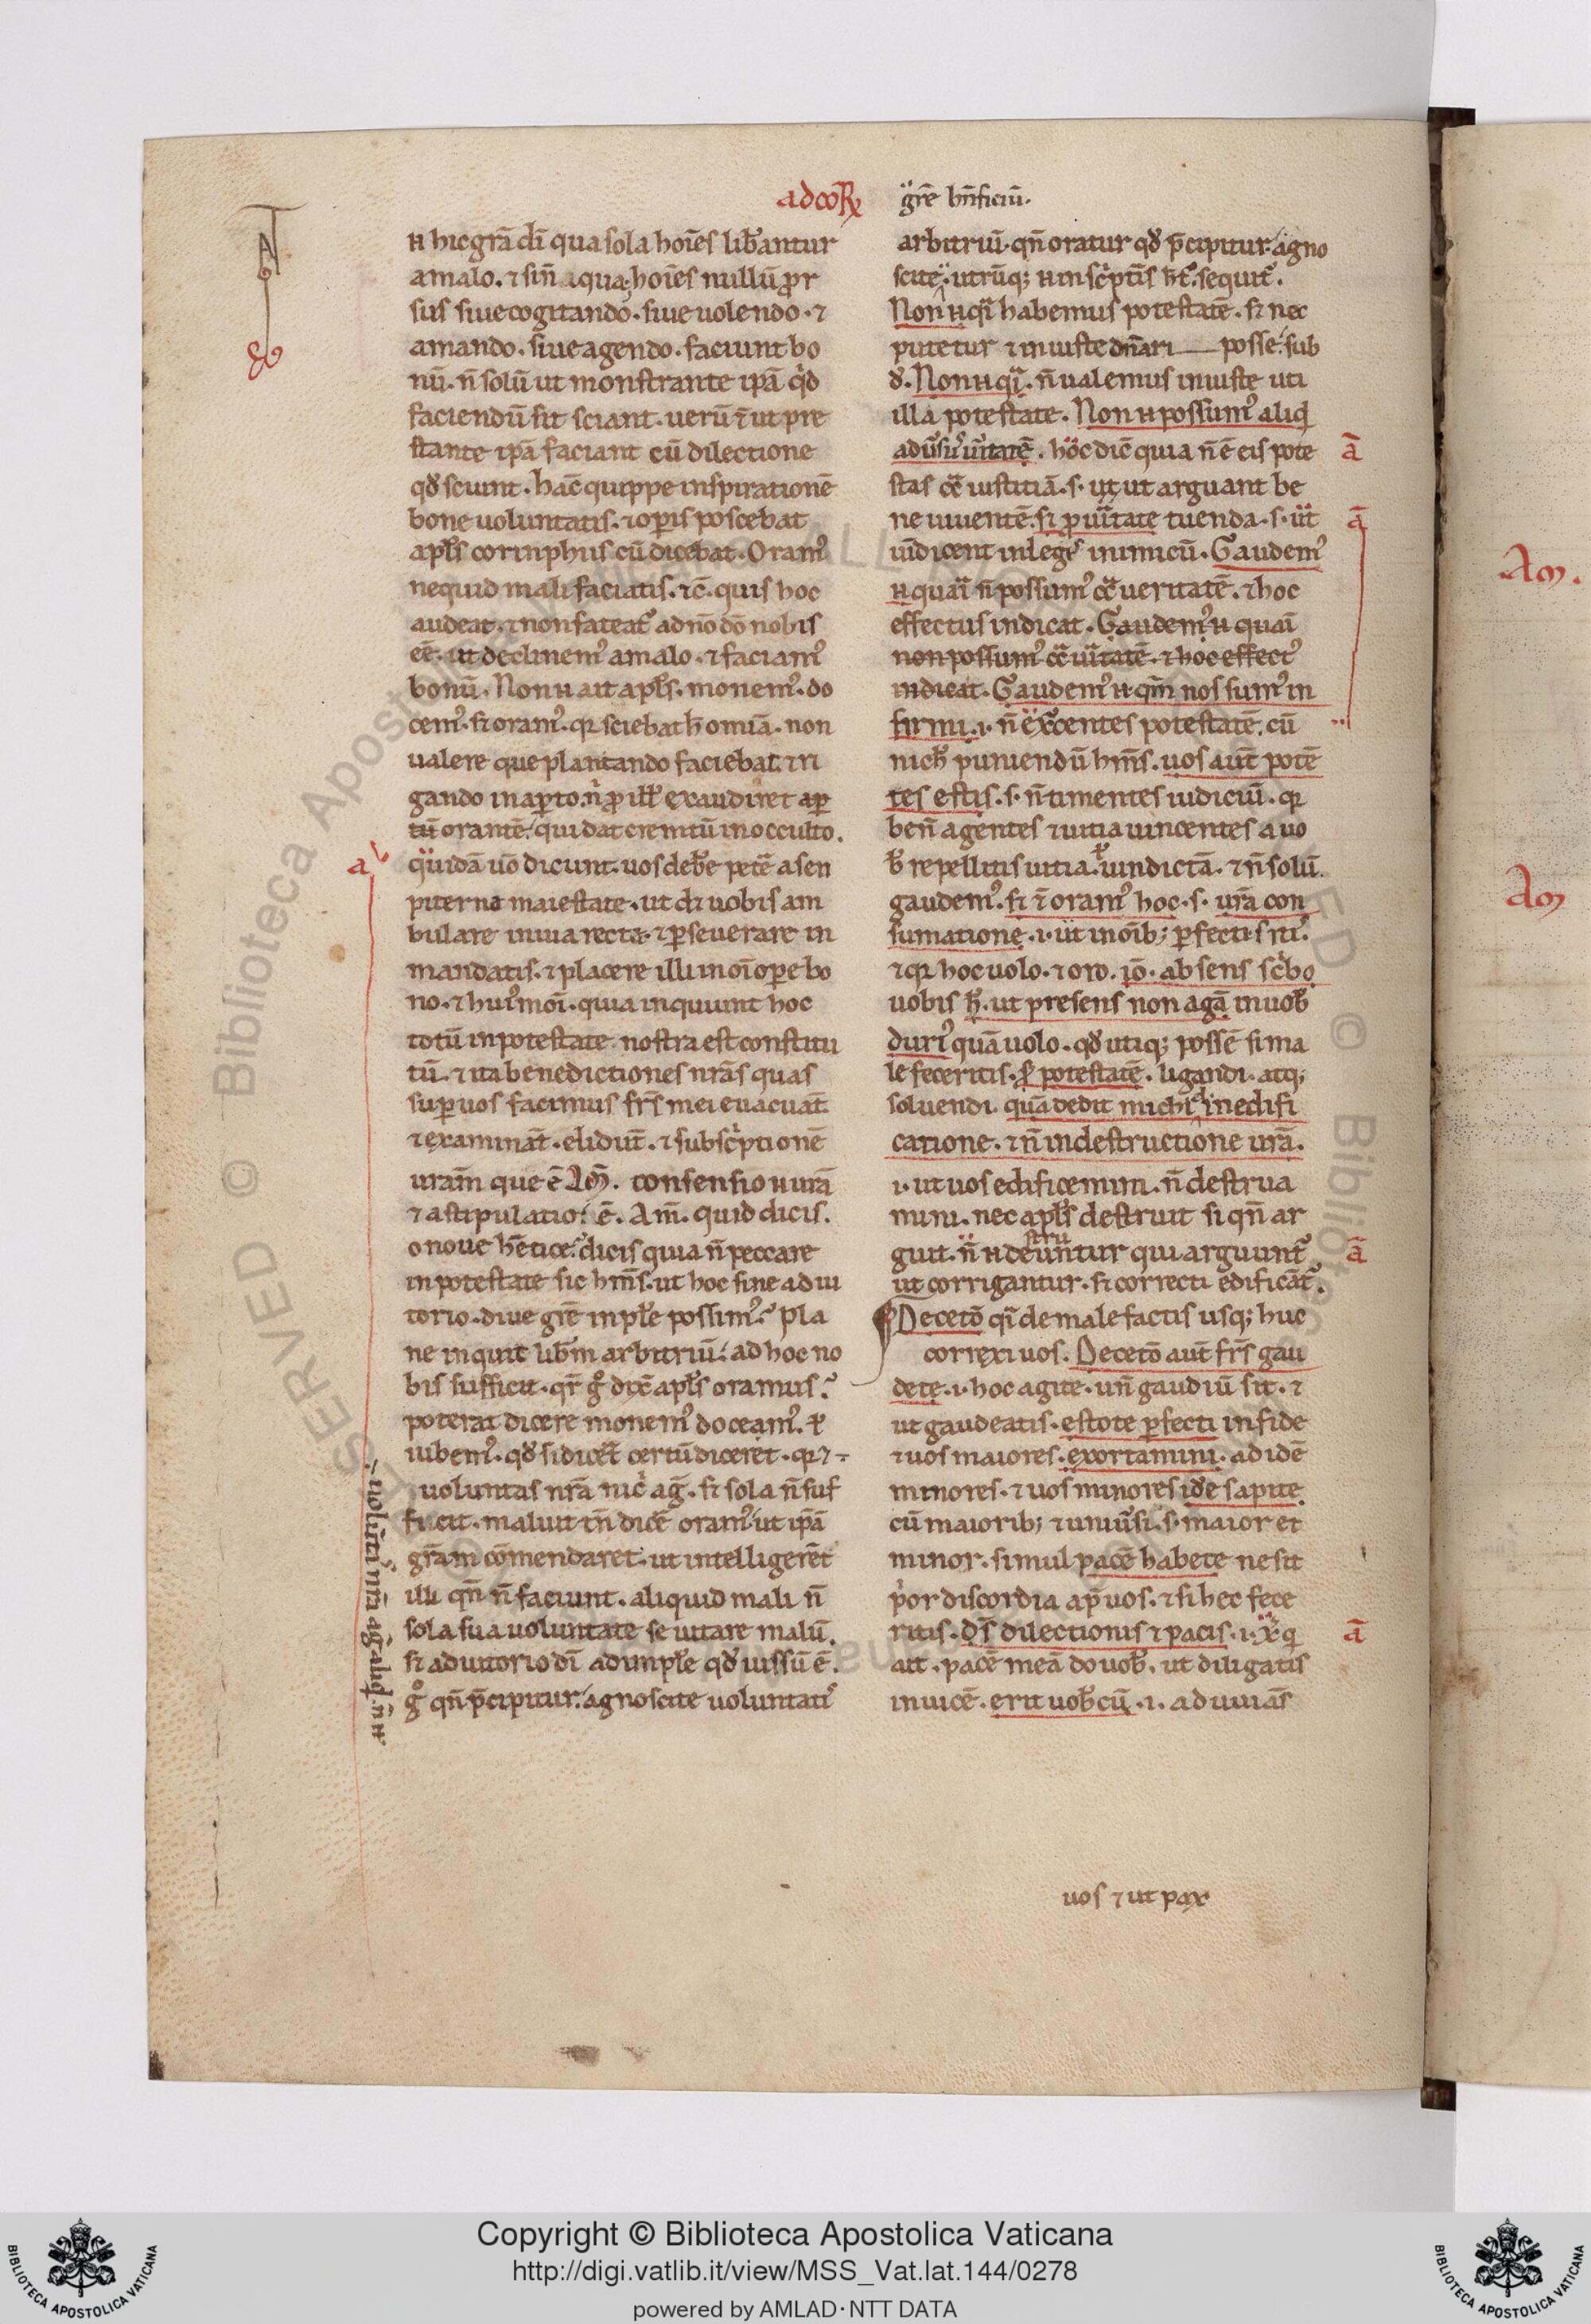 ad coR
g̃re bn̄ficiū.
n hic grā dī qua sola hoīes lib̄antur
a malo. ⁊ sin̄ a qua hoīes nullū ꝓr
sus siue cogitando. siue uolendo. ⁊
amando. siue agendo. faciunt bo
nū. n̄ solū ut monstrante ip̄a q̇d
faciendū sit sciant. uerū ⁊̄ ut pre
stante ip̄a faciant cū dilectione
qd̄ sciunt. hāc quippe inspirationē
bone uoluntatis. ⁊ oꝑis poscebat
apl̄s corinphiis cū dicebat. Oram᷒
ne quid mali faciatis. ⁊c̄. quis hoc
audeat. ⁊ non fateat᷑ ad nō dō nobis
eē. ut declinem᷒ a malo. ⁊ faciam᷒
bonū. Non n ait apl̄s. monem᷒. do
cem᷒. s̄i oram᷒. qꝛ sciebat h̄ omīa. non
ualere que plantando faciebat. ⁊ ri
gando in aꝑto. n̄ ꝓ ill̄ exaudiret aꝑ
tū orantē. qui dat crem̄tū in occulto.
a
quidā uō dicunt. uos deb̄e petē a sen
piterna maiestate. ut d̄i uobis am
bulare in uia recta. ⁊ ꝑseuerare in
mandatis. ⁊ placere illi in oī oꝑe bo
no. ⁊ hui᷒moī. quia inquiunt hoc
totū in potestate nostra est constitu
tū. ⁊ ita benedictiones nr̄as quas
suꝑ uos facimus fr̄s mei euacuāt
⁊ examināt. elidūt. ⁊ subsc̓ptionē
uram̄ que ē Am̄. consensio n ur̄a
⁊ astipulatio. ē. Am̄. quid dicis.
o noue h̄etice. dicis quia n̄ peccare
in potestate sic hm̄s. ut hoc sine adiu
torio. diue grē inpl̄e possim᷒. pla
ne inquit lib̄m arbitriū. ad hoc no
bis sufficit. qr̄ gͦ dix̄ apl̄s oramus.
poterat dicere monem᷒ doceam᷒. ł
iubem᷒. qd̄ si dicet̄ certū diceret. qꝛ ⁊
uoluntas nr̄a nic̓ aḡ. s̄i sola n̄ suf
ficit. maluit tn̄ dicē oram᷒ ut ip̄ā
grām cōmendaret. ut intelligerēt
illi qn̄ n̄ faciunt. aliquid mali n̄
sola sua uoluntate se uitare malū.
s̄i adiutorio dī adimpl̄e qd̄ iussū ē.
gͦ qn̄ p̄cipitur. agnoscite uoluntati᷒
uolūti᷒ nr̄a aḡ aliqd̄. n̄ n
arbitriū. qn̄ oratur qd̄ p̄cipitur. agno
scite. utrūq; n in sc̓ptis h̄t. sequit᷑.
Non n qi habemus potestatē. s̄i nec
putetur ⁊ iniuste dn̄ari posse. sub
d̄. Non n qi. n̄ ualemus iniuste uti
illa potestate. Non n possum᷒ aliq̄
adu᷒su᷒ ūitatē. hoc dic̄ quia n̄ ē eis pote
ā
stas cͣ iustitiā. s. ut ut arguant be
ne uiuentē. si ꝓ ūitate tuenda. s. ut
ā
uīdicent in lege inimicū. Gaudem᷒
n quā n̄ possum᷒ cͣ ueritatē. ⁊ hoc
effectus indicat. Gaudem᷒ n quā
non possum᷒ cͣ ūitatē. ⁊ hoc effect᷒
indicat. Gaudem᷒ n. qm̄ nos sum᷒ in
firmi. i. n̄ ex̄centes potestatē. cū
nich̄ puniendū hm̄s. uos aūt potē
tes estis. s. n̄ timentes iudiciū. qꝛ
ben̄ agentes ⁊ uitia uincentes a uo
b̄ repellitis uitia. ł uindictā. ⁊ n̄ solū
gaudem᷒. s̄i ⁊̄ oram᷒ hoc. s. ur̄a con
sumatione. i. ut in oīb; ꝑfecti sit᷒.
⁊ qꝛ hoc uolo. ⁊ oro. iō. absens sc̓bo
uobis h̄. ut presens non agā in uob̄
duri᷒ quā uolo. qd̄ utiq; possē si ma
le feceritis. ẜ potestatē. ligandi. atq;
soluendi. quā dedit michi in edifi
catione. ⁊ n̄ in destructione ur̄a.
i. ut uos edificemini. n̄ destrua
mini. nec apl̄s destruit si qn̄ ar
guit. n̄ n deuntur qui arguunt᷑
stru
ā
ut corrigantur. s̄i correcti edificāt᷑.
Decetō qi de male factis usq; huc
correxi uos. Decetō aūt fr̄s gau
dete. i. hoc agite. un̄ gaudiū sit. ⁊
ut gaudeatis. estote ꝑfecti in fide
⁊ uos maiores. exortamini. ad idē
minores. ⁊ uos minores idē sapite
cū maiorib; ⁊ uniu᷒si. s. maior et
minor. simul pacē habete ne sit
p̓or discordia ap̄ uos. ⁊ si hec fece
ritis. d̄s dilectionis ⁊ pacis. i. xp̄ q̄
ā
ait. pacē meā do uob̄. ut diligatis
inuicē. erit uob̄cū. i. adiuuās
uos ⁊ ut pax
Am.
Am
Copyright © Biblioteca Apostolica Vaticana
http://digi.vatlib.it/view/MSS_Vat.lat.144/0278
powered by AMLAD·NTT DATA
BIBLIOTECA APOSTOLICA VATICANA
BIBLIOTECA APOSTOLICA VATICANA